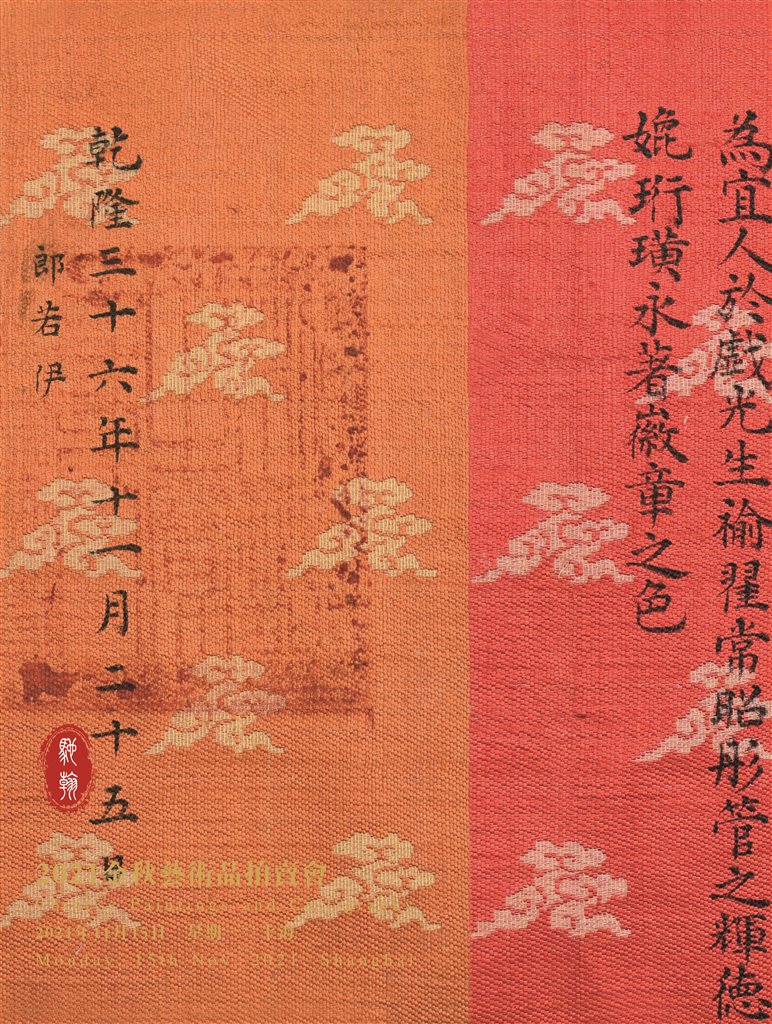 為宜人於戲光生褕翟常昭彤管之輝德
婫珩璜永著徽章之色
乾隆三十六年十一月二十五日
郎若伊
馳翰
2021金秋藝術品拍賣會
Paintings and
2021年11月15日 星期一 上海
Monday, 15th Nov, 2021, Shanghai